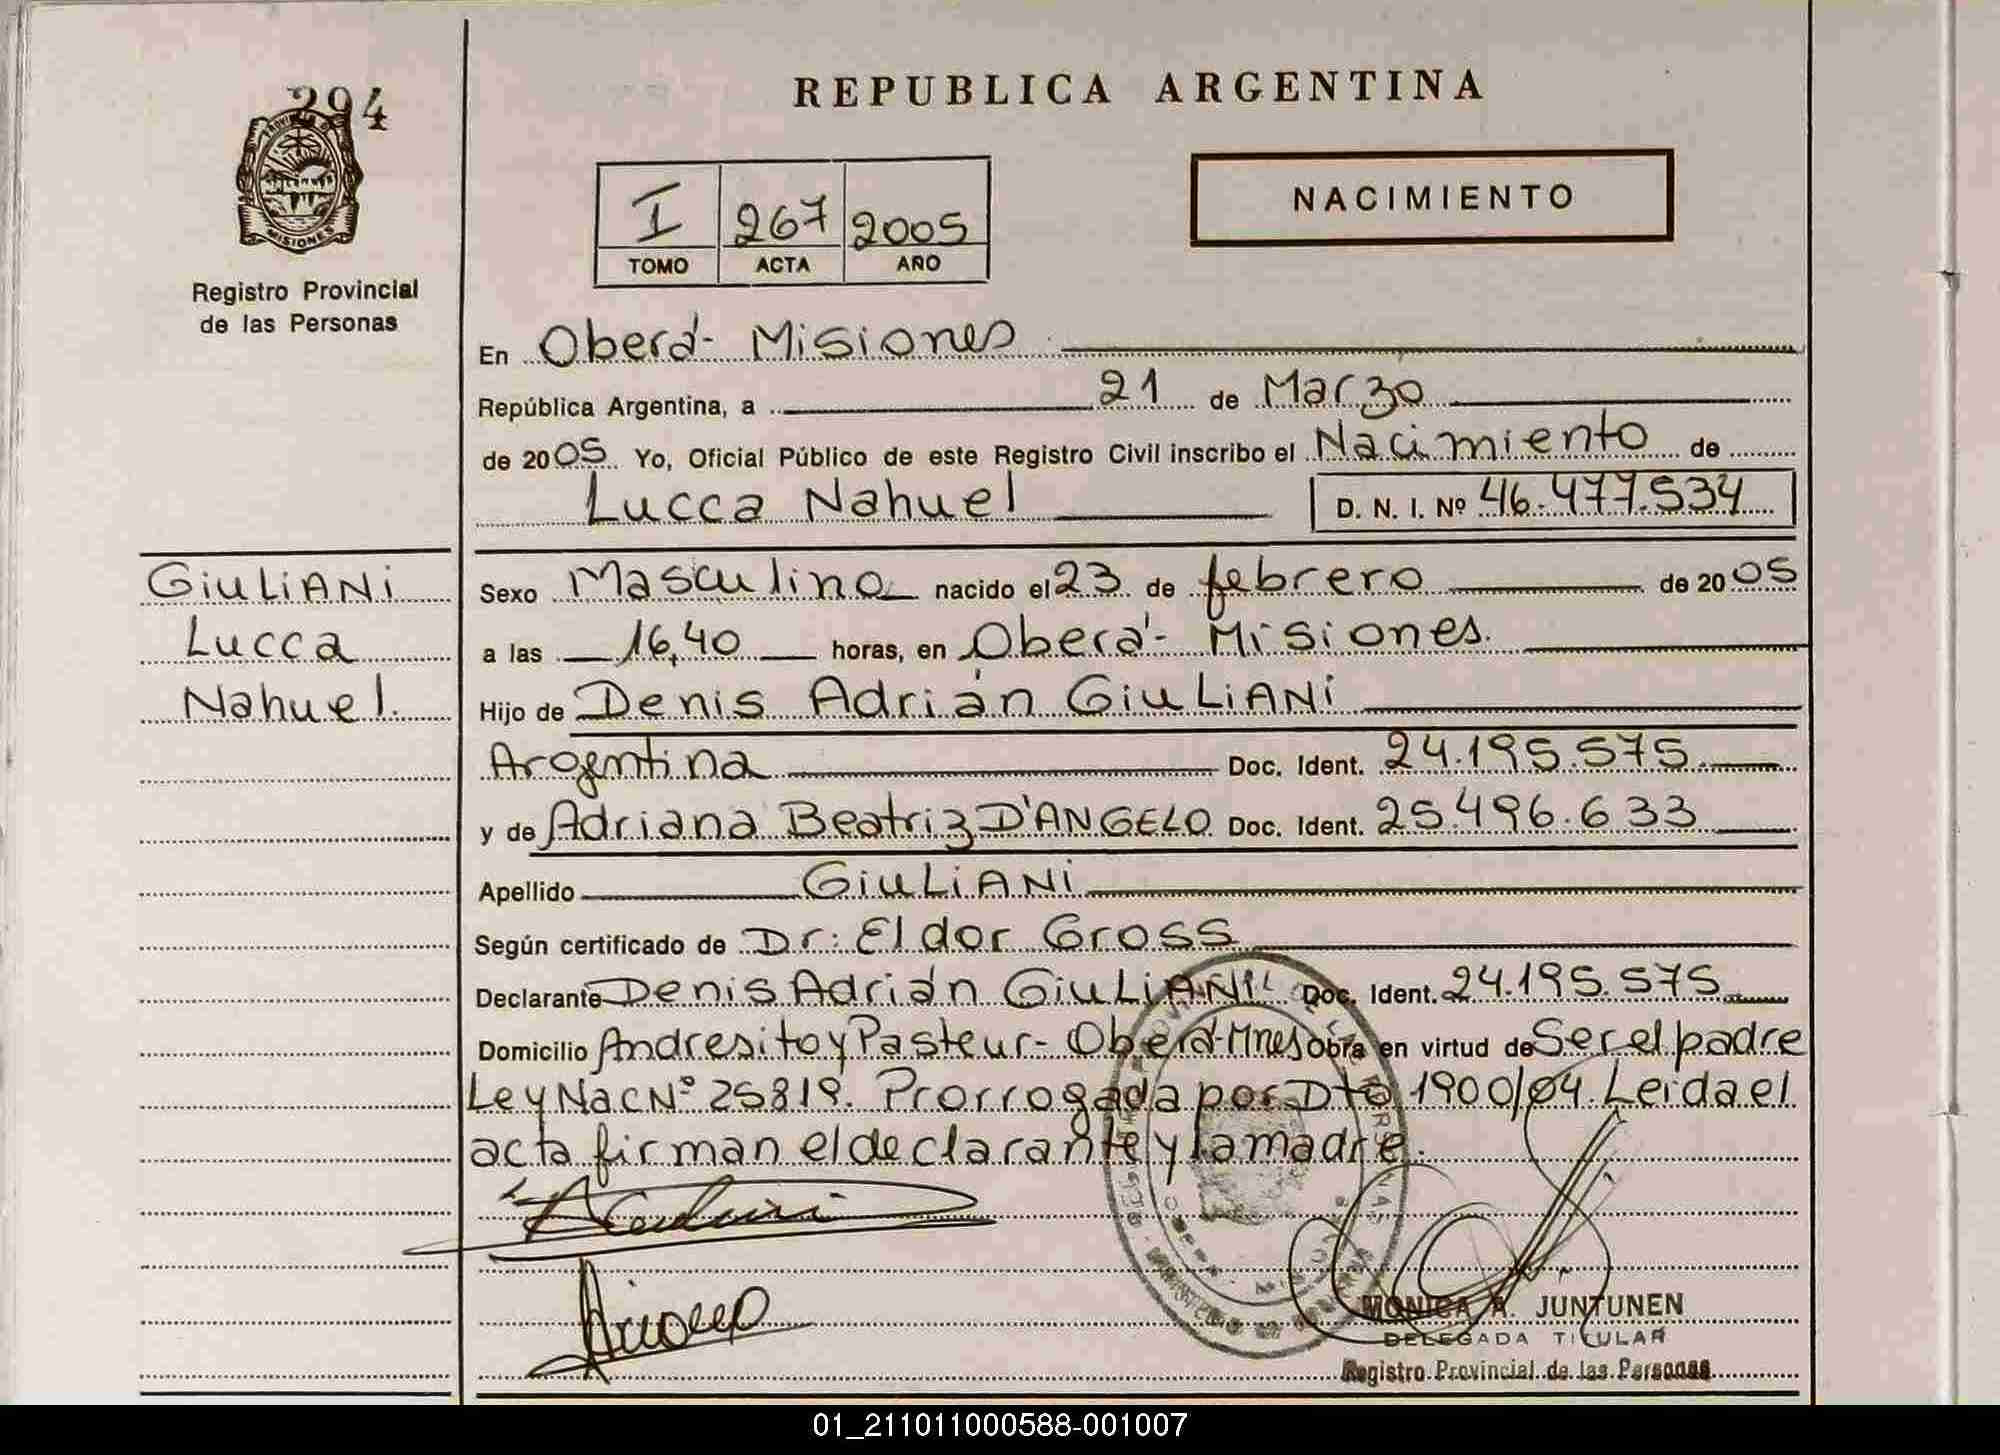 294
PROVINCIA DE
MISIONES
Registro Provincial
de las Personas
REPUBLICA ARGENTINA
I 267 2005
TOMO ACTA AÑO
NACIMIENTO
En Oberá- Misiones
República Argentina, a 21 de Marzo
de 2005 Yo, Oficial Público de este Registro Civil inscribo el Nacimiento de
Lucca Nahuel D. N. I. Nº 46.477.534
GiuLiANi
Lucca
Nahuel.
Sexo Masculino nacido el 23 de febrero de 2005
a las 16,40 horas, en Oberá- Misiones.
Hijo de Denis Adrián GiuLiANi
Argentina Doc. Ident. 24.195.575
y de Adriana Beatriz D'ANGELO Doc. Ident. 25.496.633
Apellido GiuLiANi
Según certificado de Dr: Eldor Gross
Declarante Denis Adrián GiuLiANi Doc. Ident. 24.195.575
Domicilio Andresito y Pasteur- Oberá-Mnes Obra en virtud de Ser el padre
Ley Nac Nº 25819. Prorrogada por Dto 1900/04. Leida el
acta firman el declarante y la madre.
MONICA A. JUNTUNEN
DELEGADA TITULAR
Registro Provincial de las Personas
01_211011000588-001007